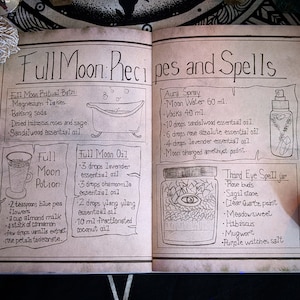 Full Moon Recipes and Spells
Full Moon Ritual Bath
Magnesium flakes
Baking soda
Dried rose and sage
Sandalwood essential oil
Full
Moon
Potion
2 teaspoon blue pea
flowers
1 cup almond milk
1 stick of cinnamon
few drops vanilla extract
Full Moon Oil
3 drops lavender
essential oil
3 drops chamomile
essential oil
2 drops ylang ylang
essential oil
10 ml fractionated
coconut oil
Aura Spray
Moon Water 60 ml
Vodka 40 ml
10 drops sandalwood essential oil
6 drops rose absolute essential oil
4 drops lavender essential oil
Moon charged amethyst point
Third Eye Spell jar
Rose buds
Sigil stone
Clear Quartz point
Meadowsweet
Hibiscus
Mugwort
Purple witches salt